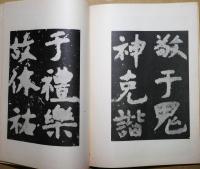 敬于鬼
神克諧
于禮樂
故休祐